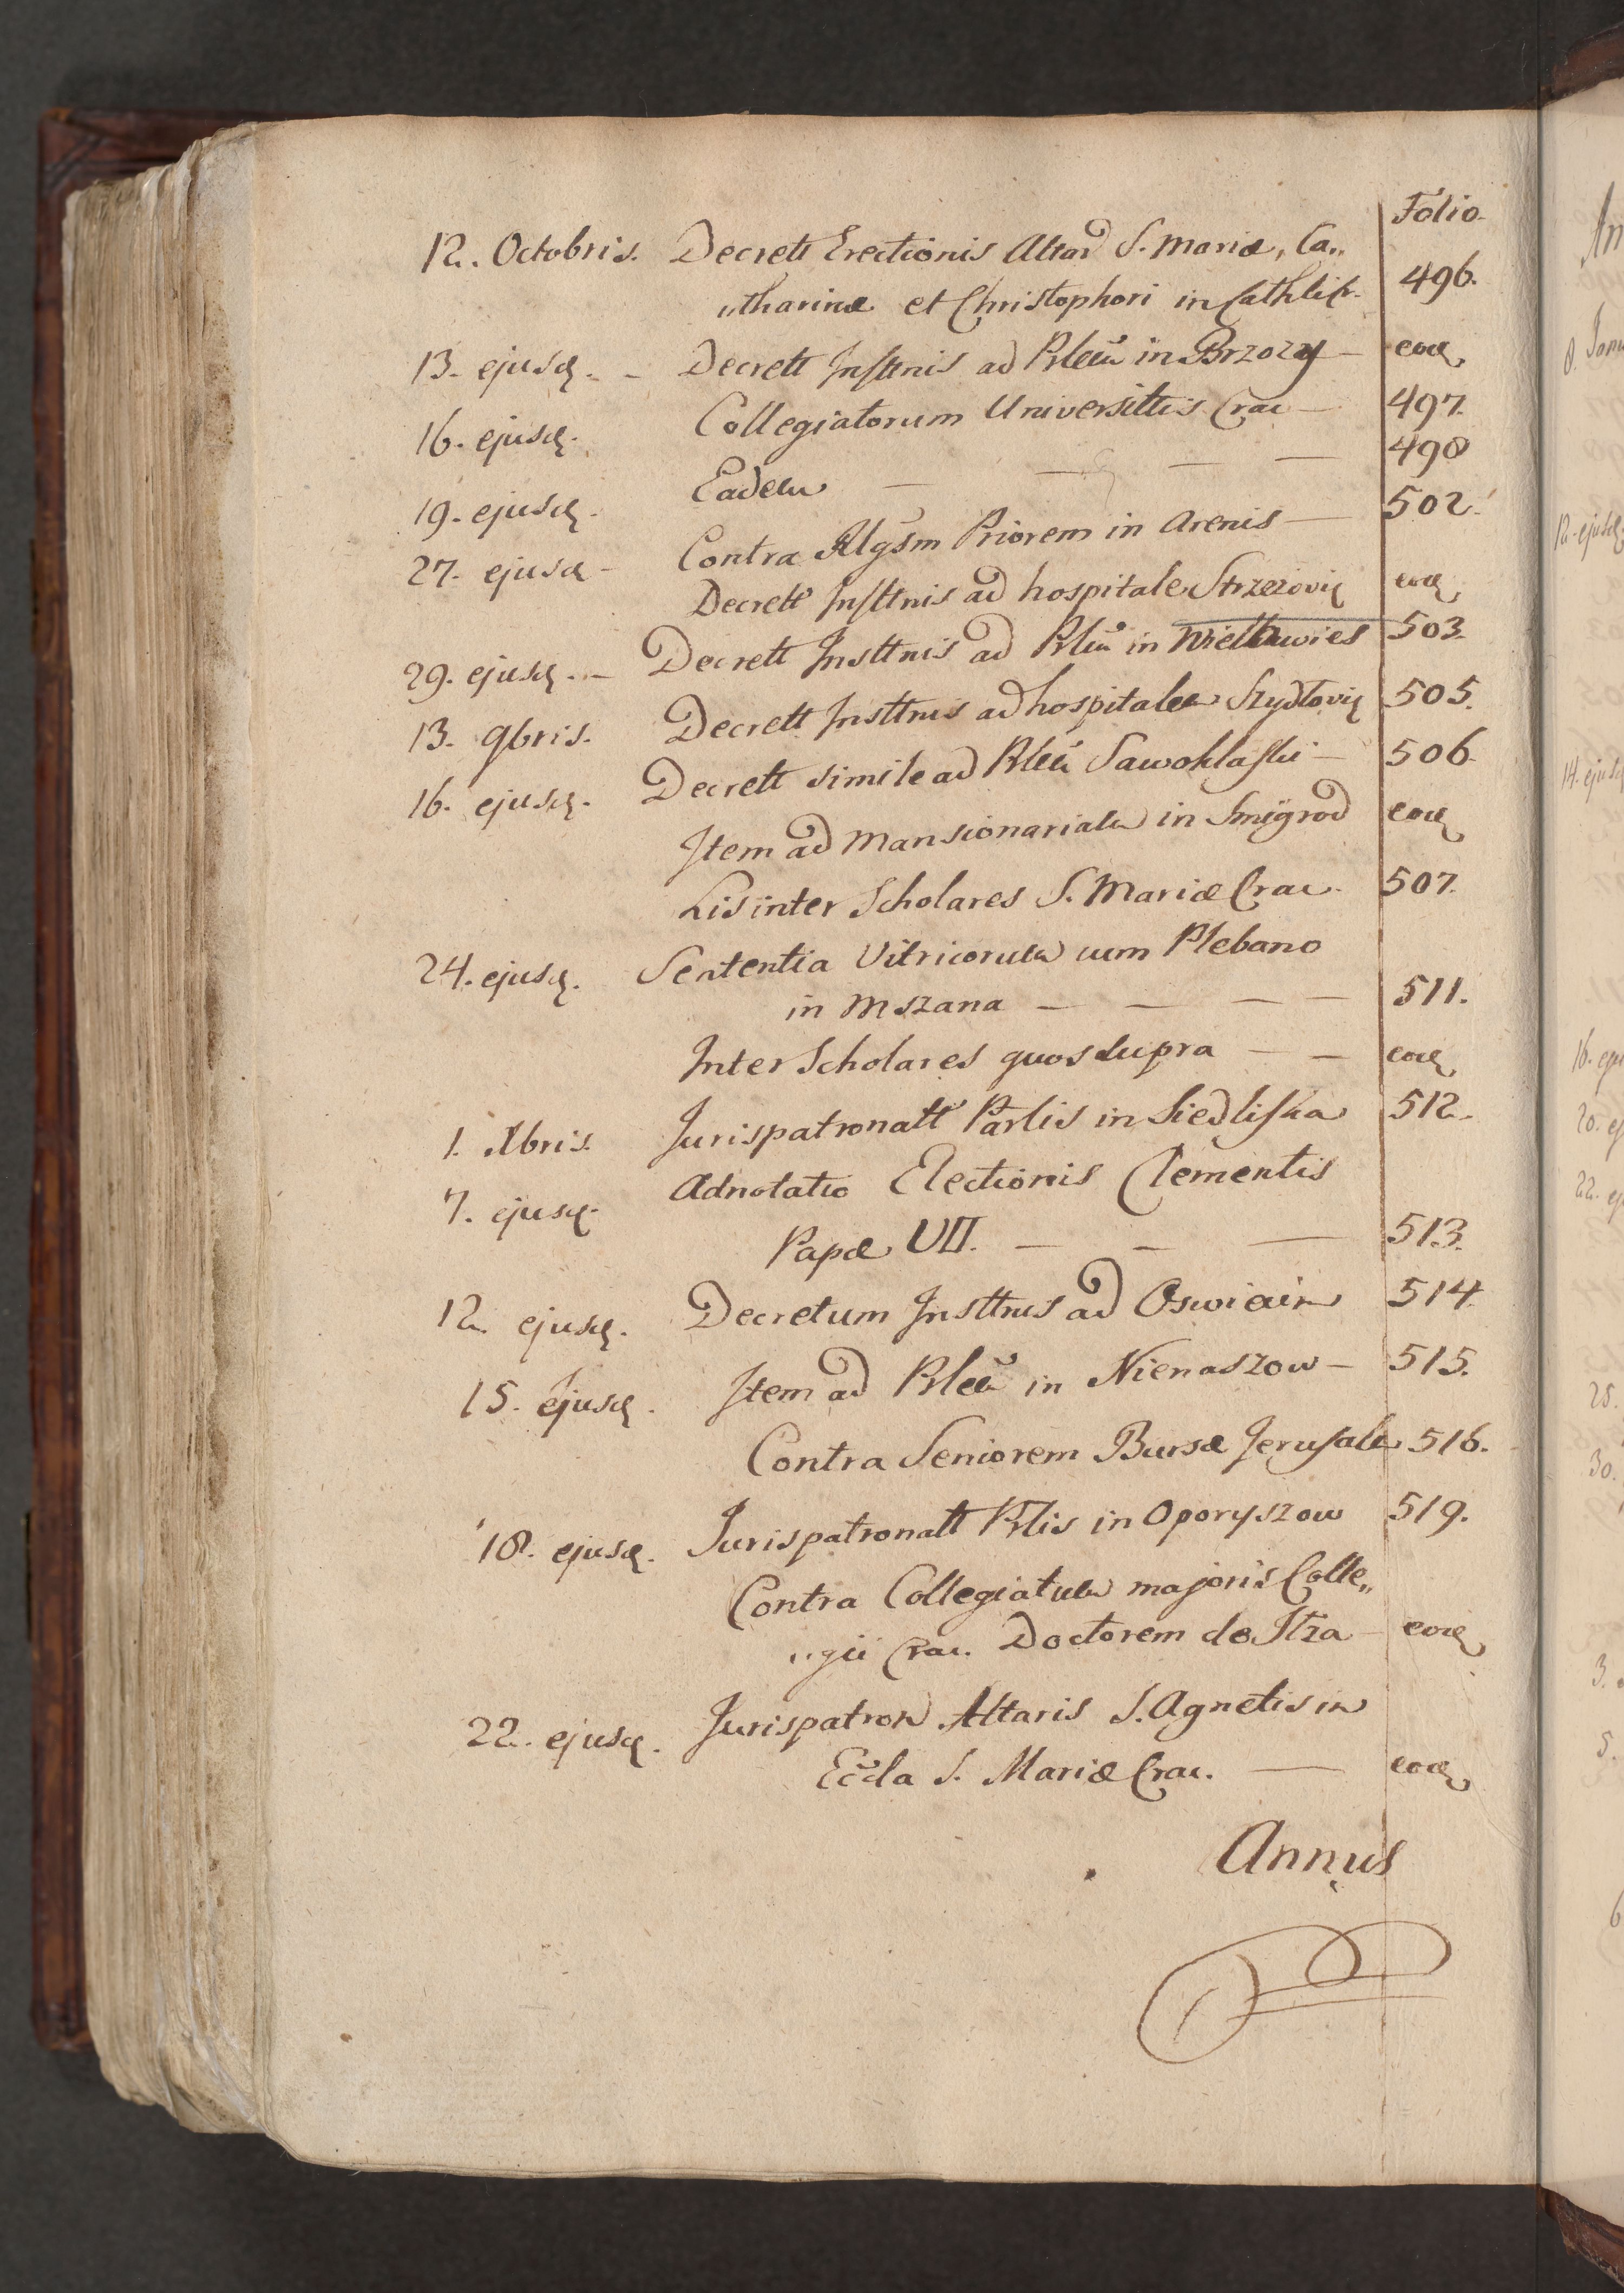 Folio.
12. Octobris. Decrett Erectionis Altar S. Mariæ, Ca„
„tharinæ et Christophori in Cathli Cr. 496.
13. ejusd. Decrett Insttnis ad Pleũ in Brzozy — eod
16. ejusd. Collegiatorum Universittis Crac — 497.
19. ejusd. Eadem — — — — 498
27. ejusd. Contra Rlgsm Priorem in Arenis — 502.
Decrett Insttnis ad hospitale Strzezovi eod
29. ejusd. — Decrett Insttnis ad Plũ in Wielkawies 503.
13. 9bris. Decrett Insttnis ad hospitalem Szydlovi 505.
16. ejusd. Decrett simile ad Pleũ Sawoklaski — 506.
Item ad Mansionariatu in Smigrod eod
Lis inter Scholares S. Mariæ Crac. 507.
24. ejusd. Sententia Vitricorum cum Plebano
in Mszana — — — — 511.
Inter Scholares quos supra — — eod
1. Xbris. Jurispatronatt Parlis in Siedliska 512.
7. ejusd. Adnotatio Electionis Clementis
Papæ VII. — — — 513.
12. ejusd. Decretum Insttnis ad Oswiecim 514.
15. Ejusd. Item ad Pleũ in Nienaszow — 515.
Contra Seniorem Bursæ Jerusale 516.
18. ejusd. Jurispatronatt Plis in Oporyszow 519.
Contra Collegiatum majoris Colle„
„gii Crac. Doctorem de Ilza — eod
22. ejusd. Jurispatron Altaris S. Agnetis in
Eccla S. Mariæ Crac. — eod
Annus